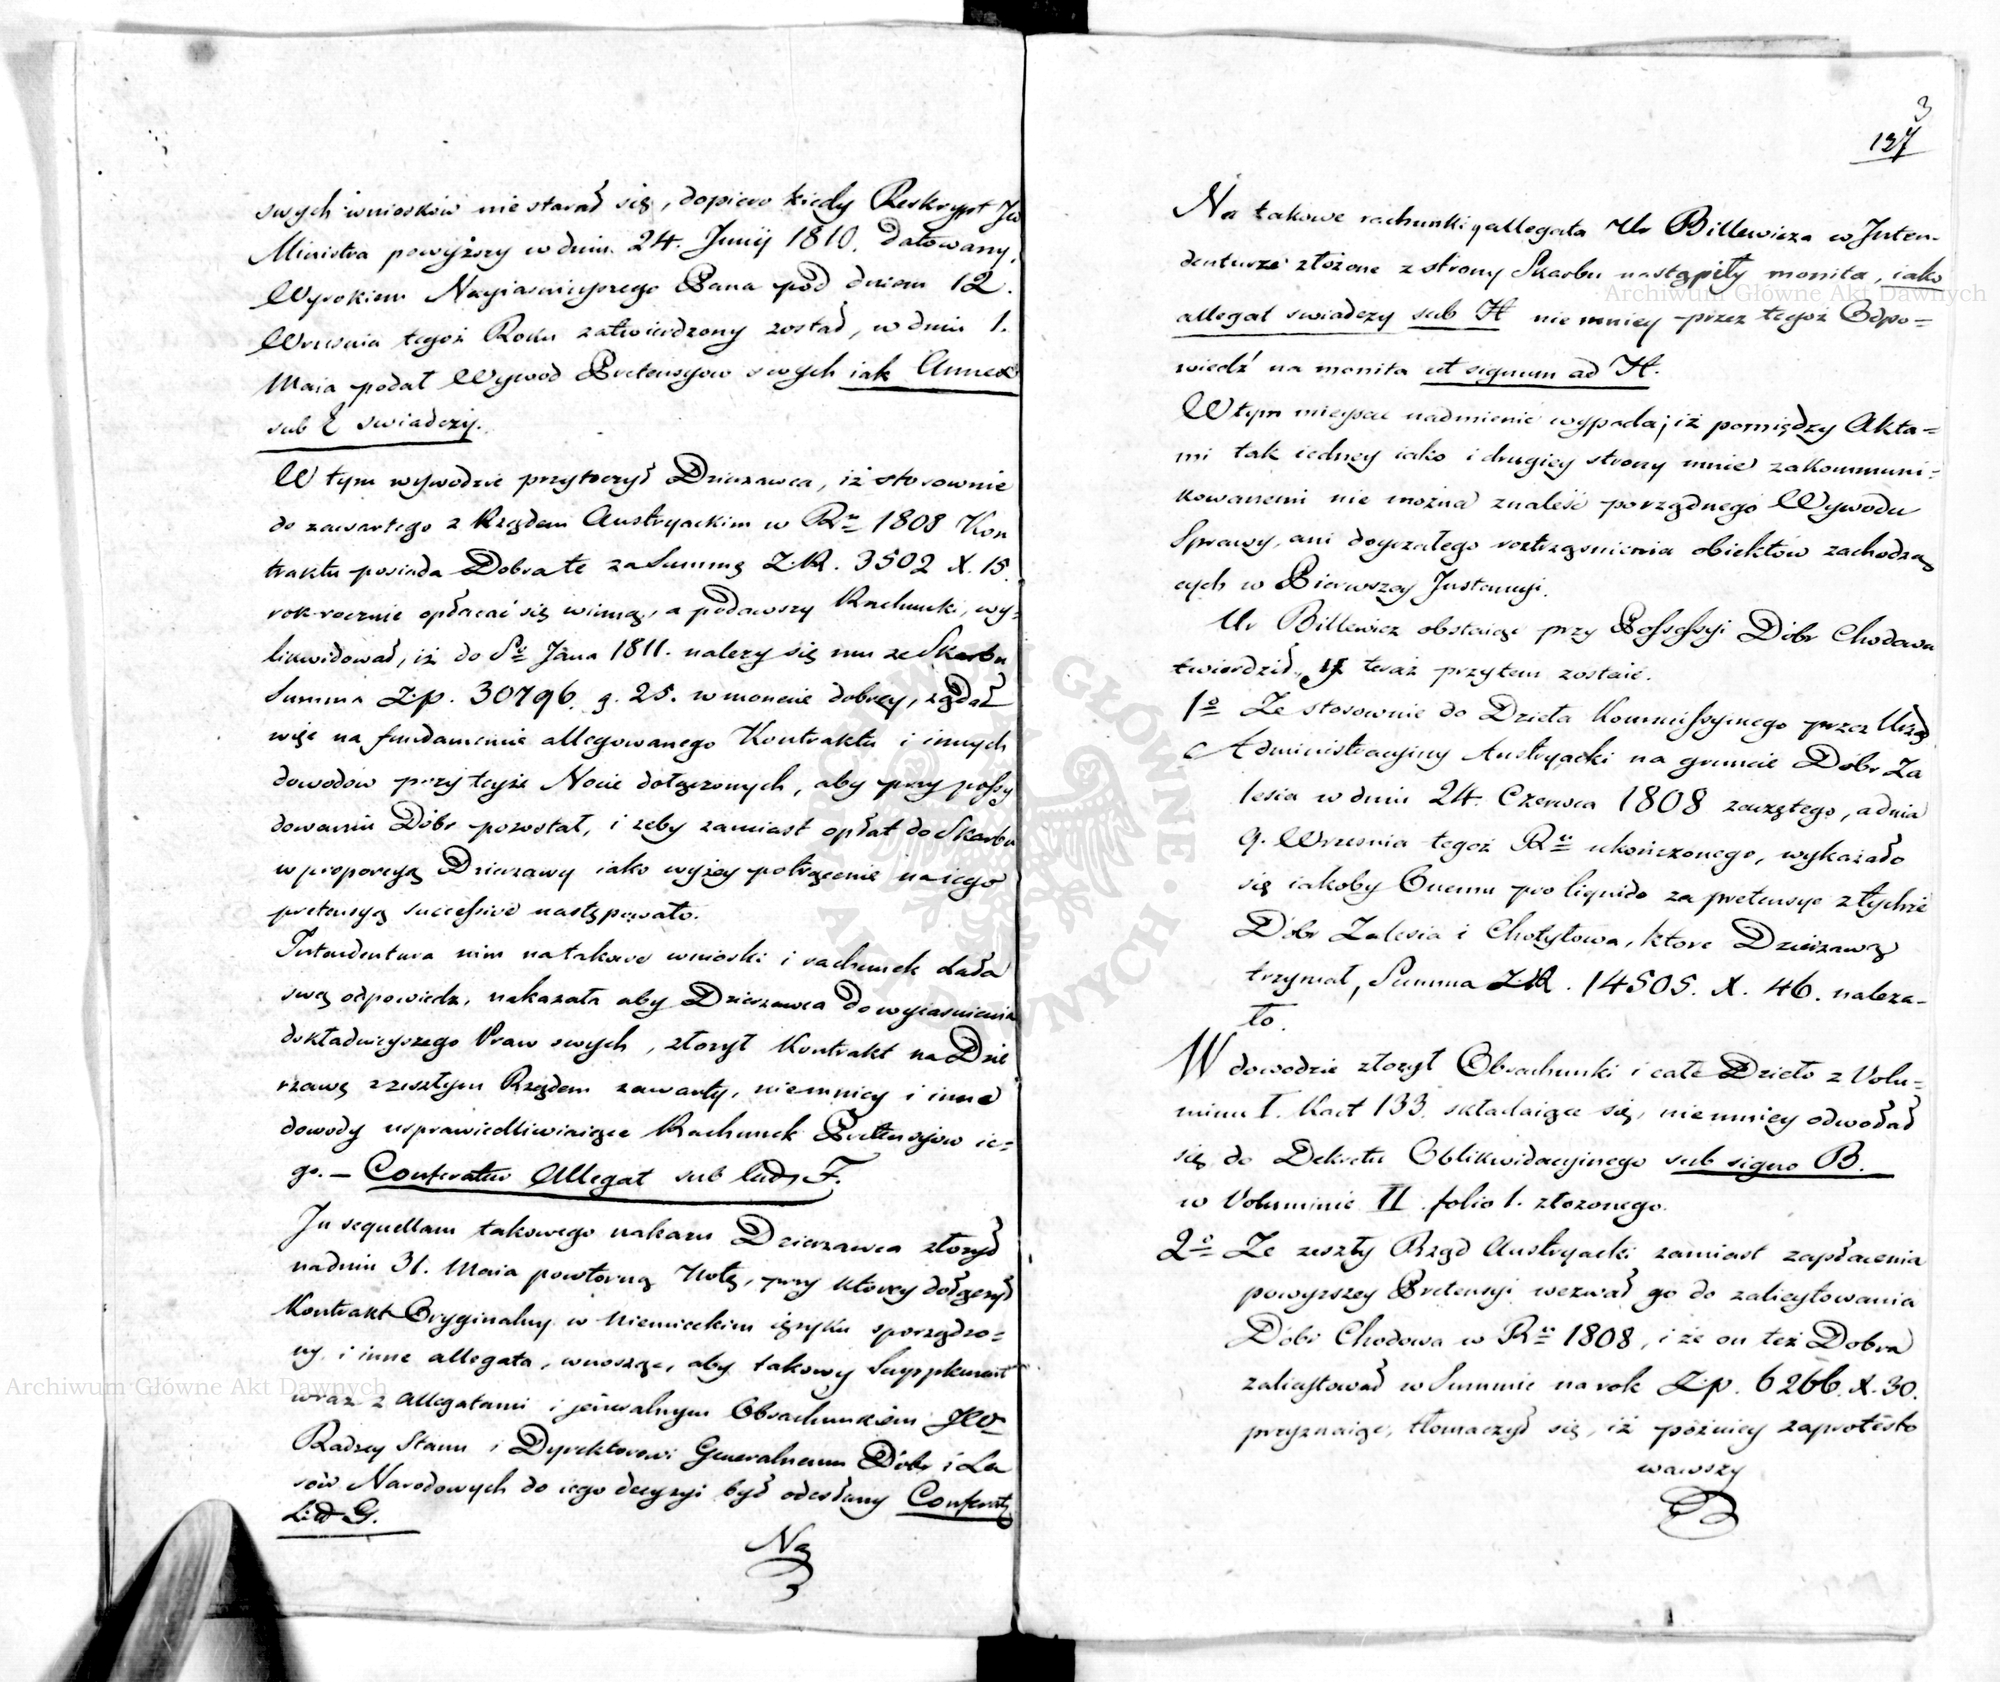 swych wniosków nie starał się, dopiero kiedy Reskrypt JW
Ministra powyższy w dniu 24. Junij 1810. datowany,
Wyrokiem Nayiaśnieyszego Pana pod dniem 12.
Września tegoż Roku zatwierdzony został, w dniu 1.
Maia podał Wywod Pretensyow swych iak Annex
sub E swiadczy.
W tym wywodzie przytoczył Dzierzawca, iż stosownie
do zawartego z Rządem Austryackim w Ru 1808 Kon
traktu posiada Dobra te za Summę ZR. 3502 X. 15.
rok rocznie opłacać się winną, a podawszy Rachunki, wy-
likwidował, iż do So Jana 1811. należy się mu ze Skarbu
Summa Zp. 30796. g. 25. w monecie dobrey, żądał
więc na fundamencie allegowanego Kontraktu i innych
dowodów przy teyże Nocie dołączonych, aby przy possy
dowaniu Dóbr pozostał, i żeby zamiast opłat do Skarbu
w proporcyą Dzierzawy iako wyżey potrącenie na iego
pretensyą successive następowało.
Intendentura nim na takowe wnioski i rachunek dała
swą odpowiedz, nakazała aby Dzierzawca do wyiasnienia
dokładnieyszego Praw swych, złożył Kontrakt na Dzie
rzawę z zeszłym Rządem zawarty, niemniey i inne
dowody usprawiedliwiaiące Rachunek Pretensyow ie=
go. — Conferatur Allegat sub F.
In sequellam takowego nakazu Dzierzawca złożył
na dniu 31. Maia powtorną Notę, przy ktorey dołączył
Kontrakt Oryginalny w niemieckim ięzyku sporządzo=
ny i inne allegata, wnosząc, aby takowy Supplement
wraz z allegatami i jeneralnym Obrachunkiem JW
Radzcy Stanu i Dyrektorowi Generalnemu Dóbr i La
sów Narodowych do iego decyzyi był odesłany Conferat
Litt G.
Na
3
137
Na takowe rachunki y allegata Ur Billewicza w Inten-
denturze złożone z strony Skarbu nastąpiły monita, iako
allegat swiadczy sub H niemniey przez tegoż Odpo=
wiedź na monita ut signum ad H.
W tym mieyscu nadmienić wypada; iż pomiędzy Akta=
mi tak iedney iako i drugiey strony mnie zakommuni=
kowanemi nie można znaleść porządnego Wywodu
Sprawy, ani doyrzałego roztrząśnienia obiektów zachodzą
cych w Pierwszey Instancyi.
Ur Billewicz obstaiąc przy Possessyi Dóbr Chodowa
twierdził, y teraz przytem zostaie.
1o Ze stosownie do Dzieła Kommissyinego przez Urząd
Administracyiny Austryacki na gruncie Dóbr Za
lesia w dniu 24. Czerwca 1808 zaczętego, a dnia
9. Września tegoż Ru ukończonego, wykazało
się iakoby Onemu pro liquido za pretensye z tychże
Dóbr Zalesia i Chotyłowa, ktore Dzierzawą
trzymał, Summa ZR. 14505. X. 46. należa-
ło.
W dowodzie złożył Obrachunki i całe Dzieło z Volu-
minu I. Kart 133. składaiące się, niemniey odwołał
się do Dekretu Oblikwidacyinego sub signo B.
w Voluminie II folio 1. złożonego.
2o Ze zeszły Rząd Austryacki zamiast zapłacenia
powyzszey Pretensyi wezwał go do zalicytowania
Dóbr Chodowa w Ru 1808, i że on też Dobra
zalicytował w Summie na rok Zp. 6266. X. 30.
przyznaiąc, tłomaczył się, iż poźniey zaprotesto
wawszy
Archiwum Główne Akt Dawnych
Archiwum Główne Akt Dawnych